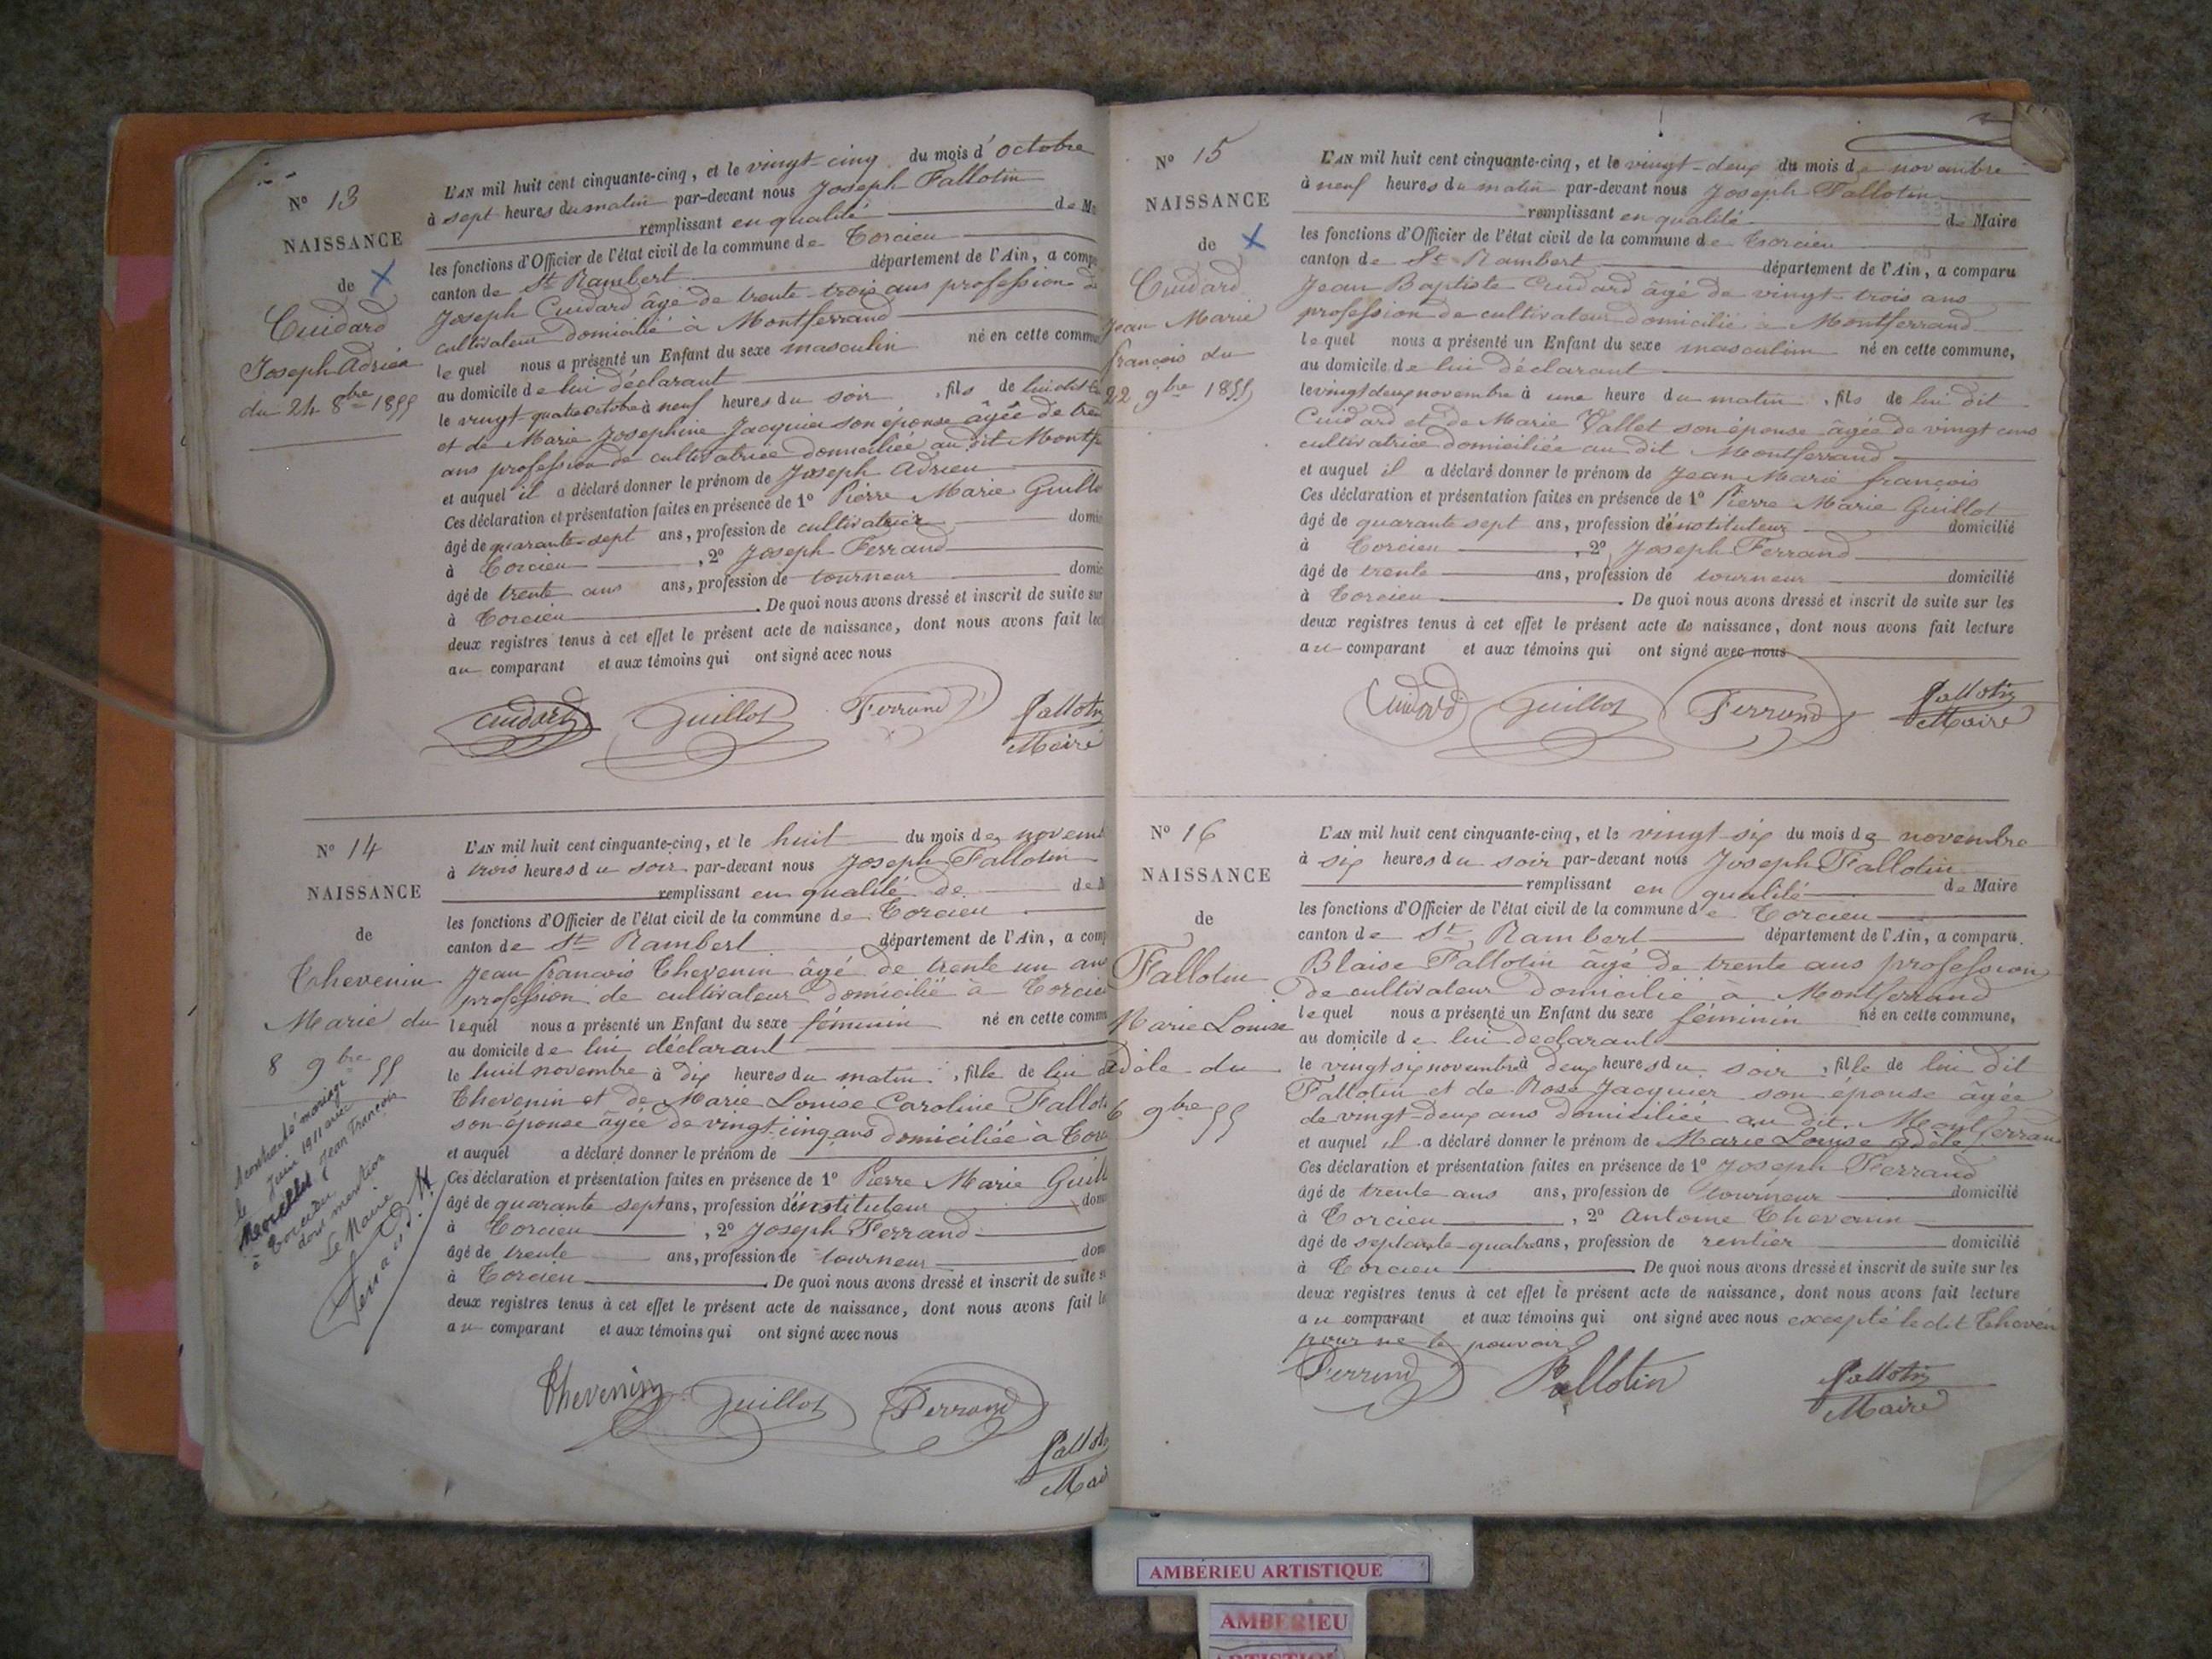 N° 13
NAISSANCE
de
Cuidard
Joseph Adrien
du 24 8bre 1855
L'AN mil huit cent cinquante-cinq, et le vingt-cinq du mois d'octobre
à sept heures du matin par-devant nous Joseph Fallotin
remplissant en qualité de
les fonctions d'Officier de l'état civil de la commune de Torcieu
canton de St Rambert département de l'Ain, a
Joseph Cuidard âgé de trente-trois ans profession
cultivateur domicilié à Montferrand
lequel nous a présenté un Enfant du sexe masculin né en cette
au domicile de lui déclarant
le vingt-quatre octobre à neuf heures du soir, fils de lui dit
et de Marie Josephine Jacquier son épouse âgée de
ans profession de cultivatrice domiciliée au dit
et auquel il a déclaré donner le prénom de Joseph Adrien
Ces déclaration et présentation faites en présence de 1° Pierre Marie
âgé de quarante-sept ans, profession de
à Torcieu, 2° Joseph Ferrand
âgé de trente ans ans, profession de tourneur
à Torcieu. De quoi nous avons dressé et inscrit de suite sur
deux registres tenus à cet effet le présent acte de naissance, dont nous avons fait
au comparant et aux témoins qui ont signé avec nous
Cuidard Guillot Ferrand Fallotin
Maire
N° 14
NAISSANCE
de
Thevenin
Marie du
8 9bre 55
A contracté mariage
le Juin 1911 avec
Jean François
à Torcieu
dont mention
Le Maire
L'AN mil huit cent cinquante-cinq, et le huit du mois de
à trois heures du soir par-devant nous Joseph Fallotin
remplissant en qualité de de
les fonctions d'Officier de l'état civil de la commune de Torcieu
canton de St Rambert département de l'Ain, a
Jean françois Thevenin âgé de trente un ans
profession de cultivateur domicilié à Torcieu
lequel nous a présenté un Enfant du sexe féminin né en cette
au domicile de lui déclarant
le huit novembre à dix heures du matin, fille de lui
Thevenin et de Marie Louise Caroline
son épouse âgée de vingt-cinq ans domiciliée à
et auquel a déclaré donner le prénom de
Ces déclaration et présentation faites en présence de 1° Pierre Marie
âgé de quarante sept ans, profession d'instituteur
à Torcieu, 2° Joseph Ferrand
âgé de trente ans, profession de tourneur
à Torcieu. De quoi nous avons dressé et inscrit de suite
deux registres tenus à cet effet le présent acte de naissance, dont nous avons fait
au comparant et aux témoins qui ont signé avec nous
Thevenin Guillot Ferrand
N° 15
NAISSANCE
de
Cuidard
Jean Marie
françois du
22 9bre 1855
L'AN mil huit cent cinquante-cinq, et le vingt-deux du mois de novembre
à neuf heures du matin par-devant nous Joseph Fallotin
remplissant en qualité de Maire
les fonctions d'Officier de l'état civil de la commune de Torcieu
canton de St Rambert département de l'Ain, a comparu
Jean Baptiste Cuidard âgé de vingt-trois ans
profession de cultivateur domicilié à Montferrand
lequel nous a présenté un Enfant du sexe masculin né en cette commune,
au domicile de lui déclarant
le vingt deux novembre à une heure du matin, fils de lui dit
Cuidard et de Marie Vallet son épouse âgée de vingt ans
cultivatrice domiciliée au dit Montferrand
et auquel il a déclaré donner le prénom de Jean Marie françois
Ces déclaration et présentation faites en présence de 1° Pierre Marie Guillot
âgé de quarante sept ans, profession d'instituteur domicilié
à Torcieu, 2° Joseph Ferrand
âgé de trente ans, profession de tourneur domicilié
à Torcieu. De quoi nous avons dressé et inscrit de suite sur les
deux registres tenus à cet effet le présent acte de naissance, dont nous avons fait lecture
au comparant et aux témoins qui ont signé avec nous
Cuidard Guillot Ferrand Fallotin
Maire
N° 16
NAISSANCE
de
Fallotin
Marie Louise
adèle du
9bre 55
L'AN mil huit cent cinquante-cinq, et le vingt-six du mois de novembre
à six heures du soir par-devant nous Joseph Fallotin
remplissant en qualité de Maire
les fonctions d'Officier de l'état civil de la commune de Torcieu
canton de St Rambert département de l'Ain, a comparu.
Blaise Fallotin âgé de trente ans profession
de cultivateur domicilié à Montferrand
lequel nous a présenté un Enfant du sexe féminin né en cette commune,
au domicile de lui déclarant
le vingt six novembre à deux heures du soir, fille de lui dit
Fallotin et de Rose Jacquier son épouse âgée
de vingt-deux ans domiciliée au dit Montferrand
et auquel il a déclaré donner le prénom de Marie Louise adèle
Ces déclaration et présentation faites en présence de 1° Joseph Ferrand
âgé de trente ans ans, profession de tourneur domicilié
à Torcieu, 2° Antoine Thevenin
âgé de septante-quatre ans, profession de rentier domicilié
à Torcieu. De quoi nous avons dressé et inscrit de suite sur les
deux registres tenus à cet effet le présent acte de naissance, dont nous avons fait lecture
au comparant et aux témoins qui ont signé avec nous excepté le dit Thevenin
pour ne le pouvoir
Ferrand Fallotin Fallotin
Maire
AMBÉRIEU ARTISTIQUE
AMBERIEU
ARTISTIQUE